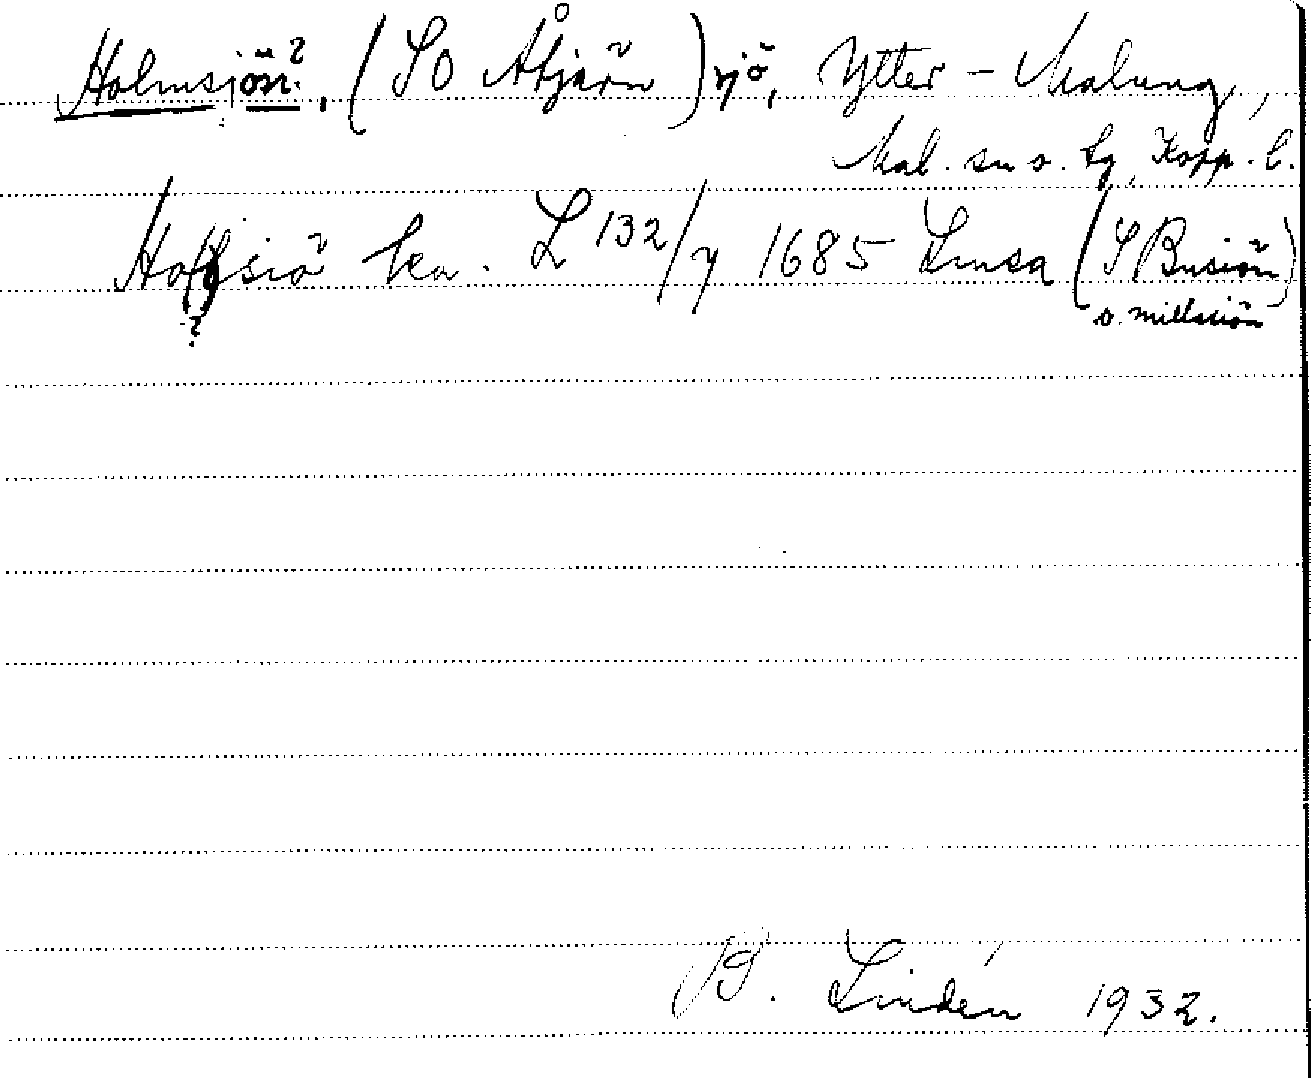 Holmsjön?, (SO Åtjärn) sjö, Ytter-Malung,
Mal. sn o. tg, Kopp. l.
Hoffsiö ka. L 132/7 1685 Limsa (S Busiön)
? o. millsiön
B. Lindén 1932.